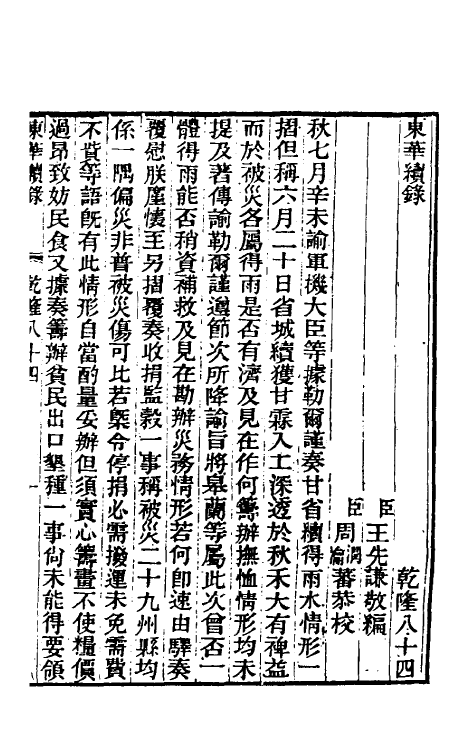 東華續錄
乾隆八十四
臣王先謙敬編
臣周潤蕃
瀹恭校
秋七月辛未諭軍機大臣等據勒爾謹奏甘省續得雨水情形一
摺但稱六月二十日省城續獲甘霖入土深透於秋禾大有裨益
而於被災各屬得雨是否有濟及見在作何籌辦撫恤情形均未
提及著傳諭勒爾謹遵節次所降諭旨將臯蘭等屬此次曾否一
體得雨能否稍資補救及見在勘辦災務情形若何卽速由驛奏
覆慰朕廑懷至另摺覆奏收捐監穀一事稱被災二十九州縣均
係一隅偏災非普被災傷可比若槩令停捐必需撥運未免需費
不貲等語旣有此情形自當酌量妥辦但須實心籌畫不使糧價
過昂致妨民食又據奏籌辦貧民出口墾種一事尙未能得要領
東華續錄
乾隆八十四
一